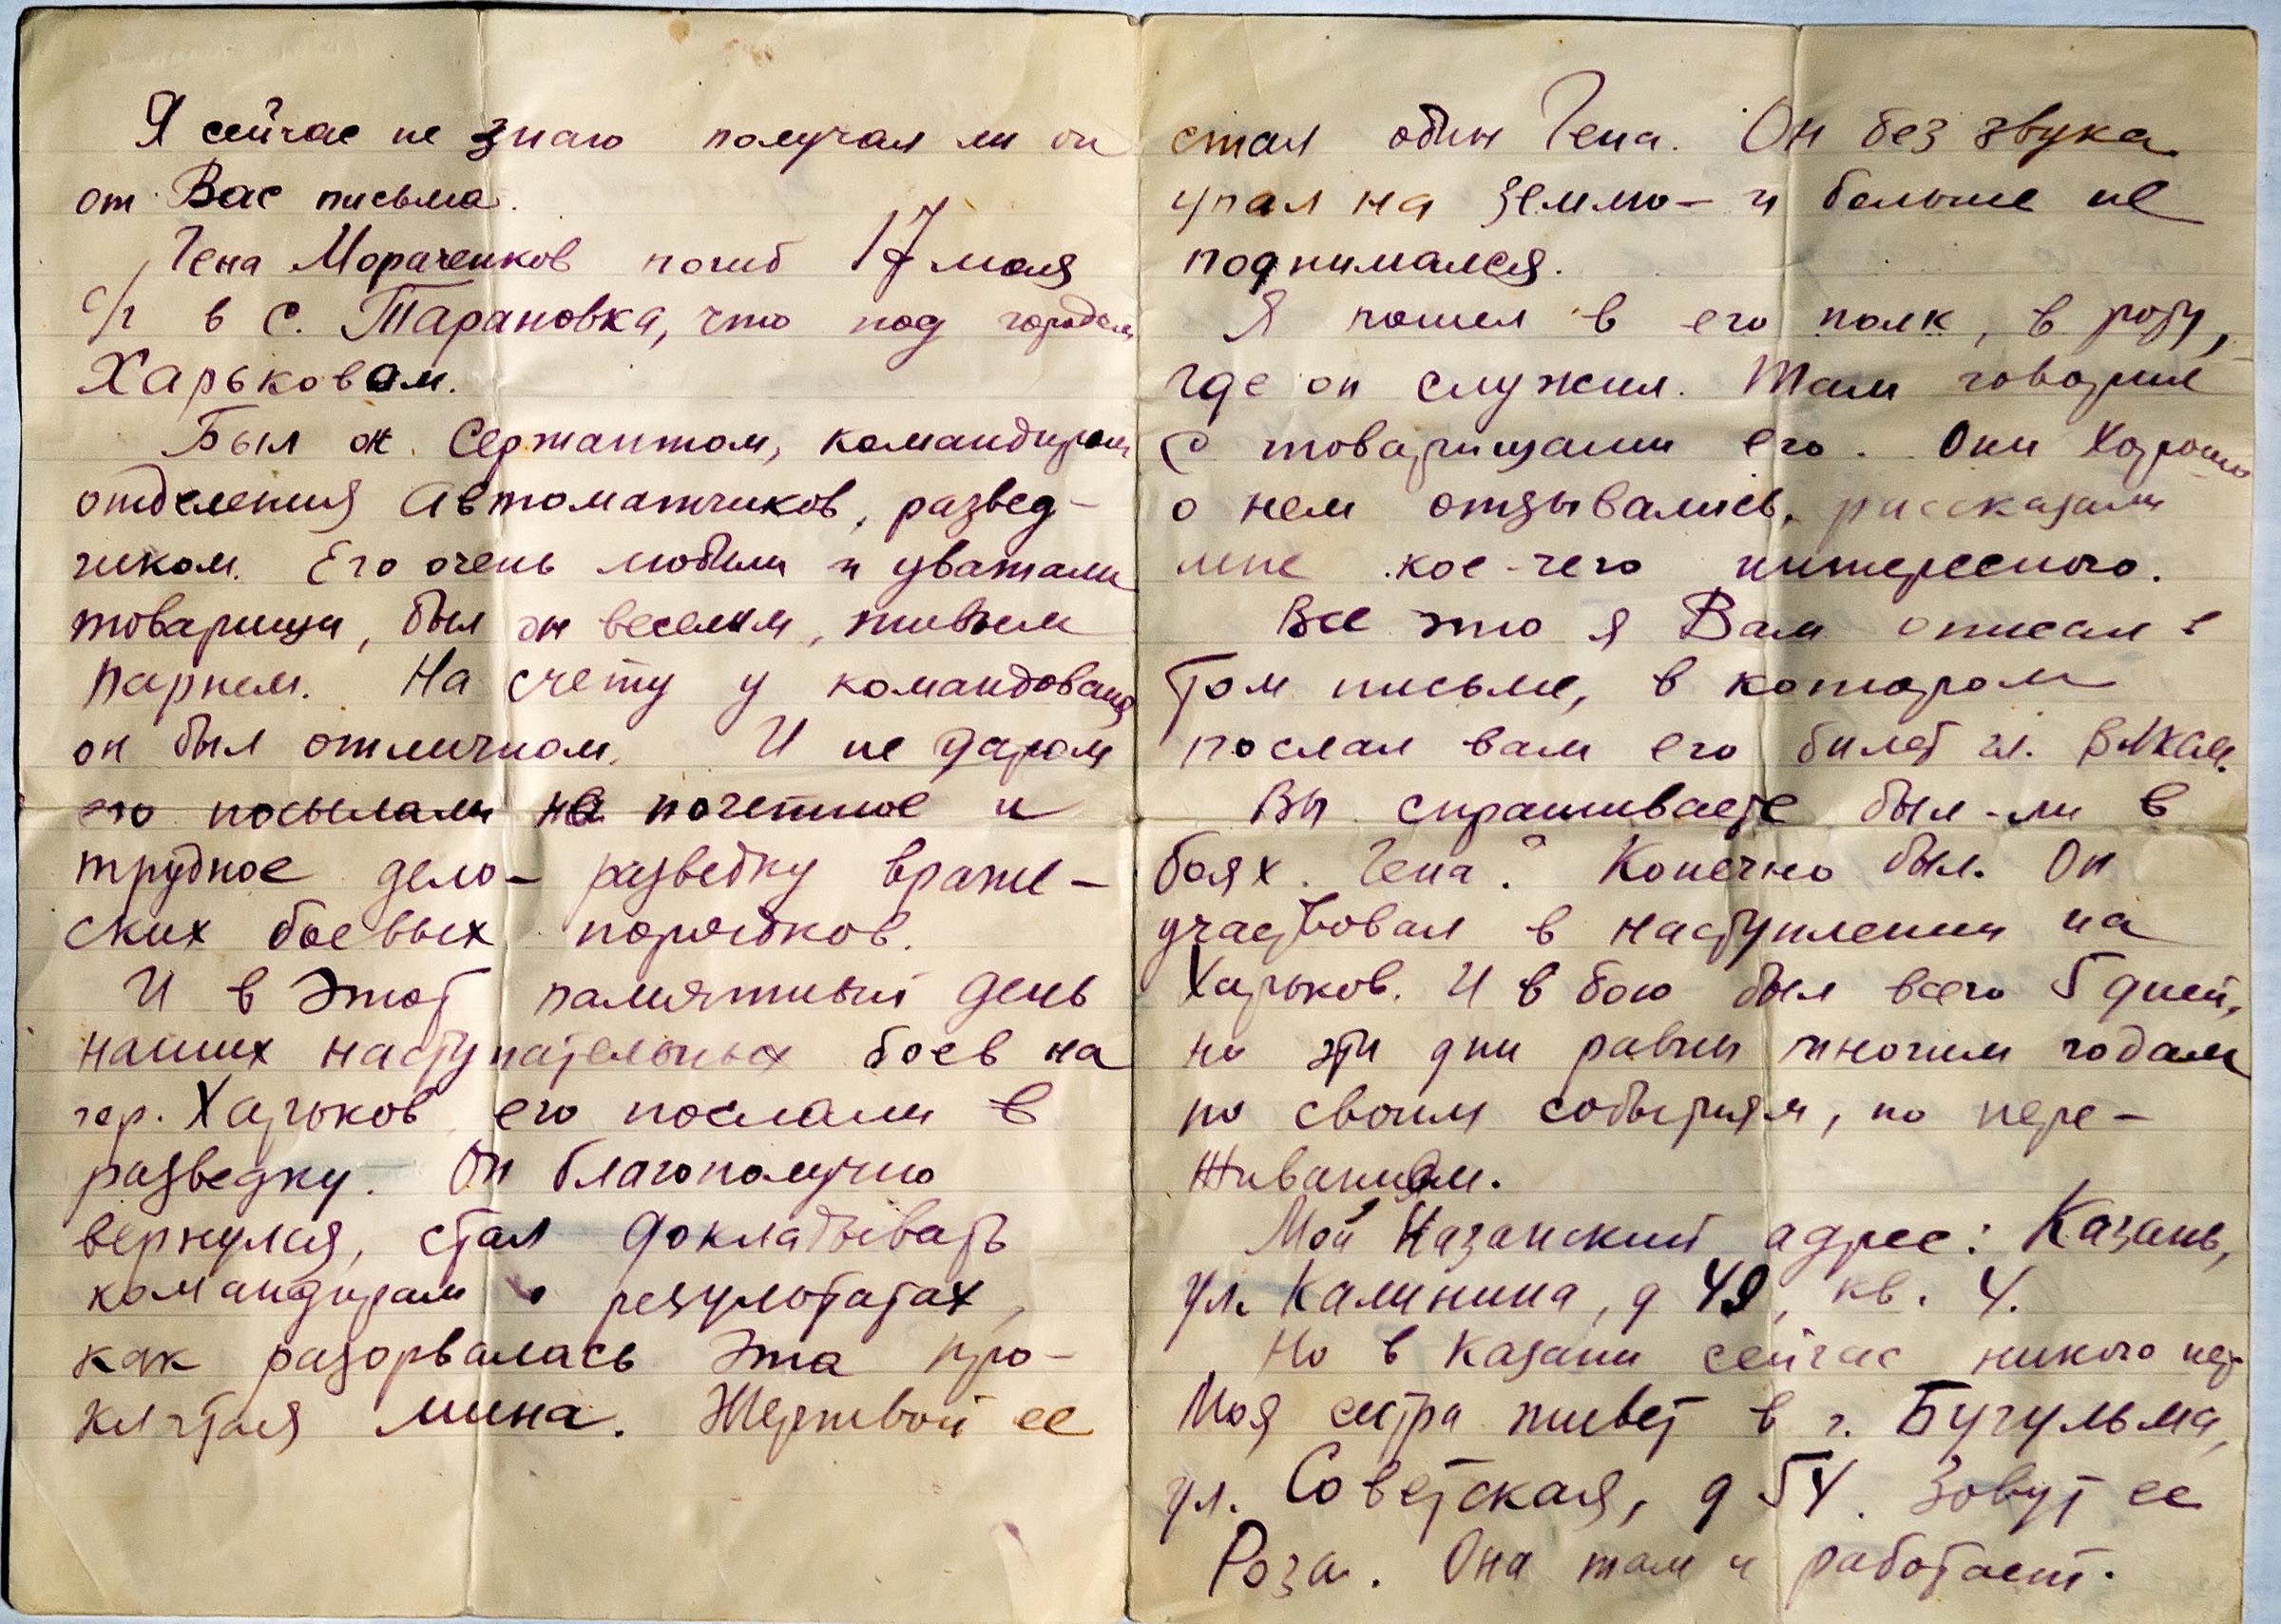 Я сейчас не знаю получал ли он
от Вас письма.
Гена Мораченков погиб 17 мая
с/г в с. Тарановка, что под городом
Харьковом.
Был он Сержантом, командиром
отделения Автоматчиков, развед-
чиком. Его очень любили и уважали
товарищи, был он веселым, живым
парнем. На счету у командования
он был отличном. И не даром
его посылали на почетное и
трудное дело- разведку враже-
ских боевых порядков.
И в этот памятный день
наших наступательных боев на
гор. Харьков его послали в
разведку. Он благополучно
вернулся, стал докладывать
командирам о результатах,
как разорвалась эта про-
клятая мина. Жертвой ее
стал один Гена. Он без звука
упал на землю- и больше не
поднимался.
Я пошел в его полк, в роту,
где он служил. Там говорил
с товарищами его. Они хорошо
о нем отзывались, рассказали
мне кое-чего интересного.
Все это я Вам описал в
том письме, в котором
послал вам его билет чл. ВЛКСМ.
Вы спрашиваете был-ли в
боях Гена? Конечно был. Он
участвовал в наступлении на
Харьков. И в бою был всего 5 дней,
но эти дни равны многим годам
по своим событиям, по пере-
живаниям.
Мой Казанский адрес: Казань,
ул. Калинина, д 49, кв. 4.
Но в Казани сейчас никого нет
Моя сестра живет в г. Бугульма,
ул. Советская, д 54. Зовут ее
Роза. Она там и работает.